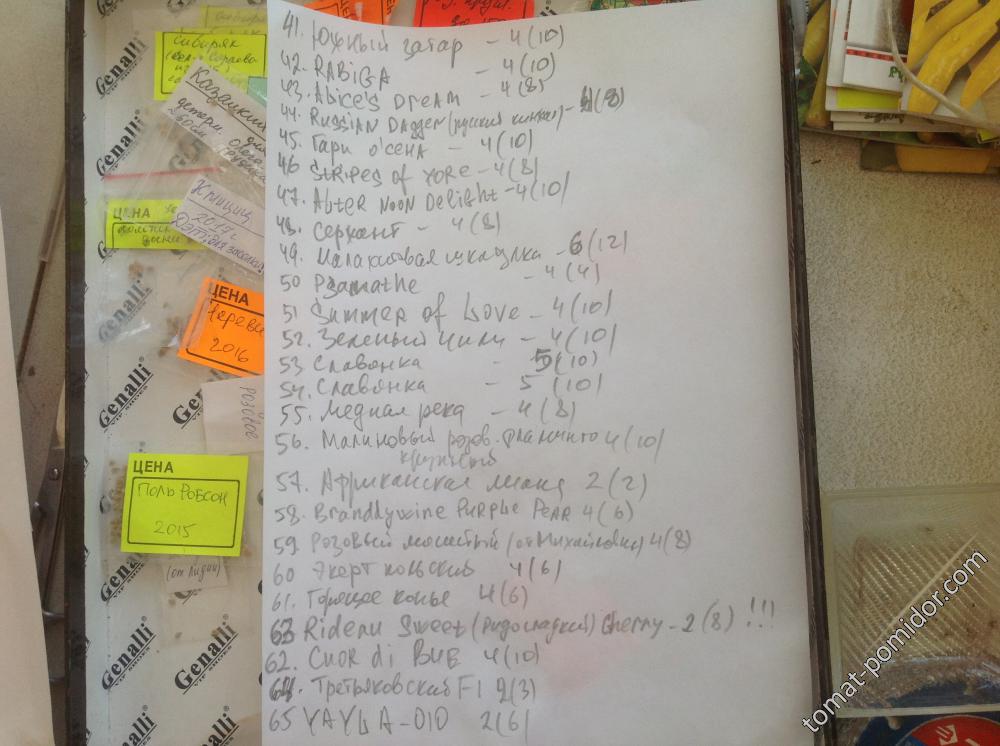 41. Южный загар – 4(10)
42. RABIGA – 4(10)
43. Alice's DREAM – 4(8)
44. RUSSIAN DAGGER (русский кинжал) – 4(8)
45. Гари О'Сена – 4(10)
46 STRIPES of YORE – 4(8)
47. AbtER NOON Delight – 4(10)
48. Сержант – 4(8)
49. Малахитовая шкатулка – 6(12)
50 Psamathe – 4(4)
51 Summer of Love – 4(10)
52. Зеленый Чили – 4(10)
53 Славянка – 5(10)
54. Славянка – 5(10)
55. Медная река – 4(8)
56. Малиновый розов. фламинго 4(10)
крупный
57. Африканская лиана 2(2)
58. Brandywine PURPLE PEAR 4(6)
59 Розовый мясистый (от Михайловны) 4(8)
60 Экерт польский 4(6)
61. Горящее копье 4(6)
63 Ridenu Sweet (ридосладкий) Cherry – 2(8) !!!
62. Cuor di BUE 4(10)
64. Третьяковский F1 2(3)
65 YAYLA – 010 2(6)
Сибиряк
Казацкий
детерм.
Хлыщиц
2017
ЦЕНА
ЦЕНА
2016
розовое
ЦЕНА
Поль Робсон
2015
(от Лидии)
Genalli
VIP SERVICE
tomat-pomidor.com